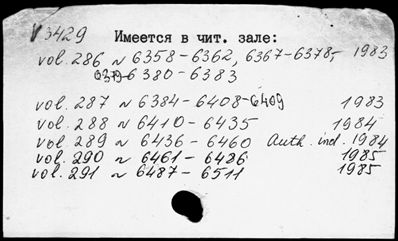 V3429 Имеется в чит. зале:
vol. 286 N 6358-6362, 6367-6378, 1983
6379-6380-6383
vol. 287 N 6384-6408-6409 1983
vol. 288 N 6410-6435 1984
vol. 289 N 6436-6460 Auth. ind. 1984
vol. 290 N 6461-6486 1985
vol. 291 N 6487-6511 1985